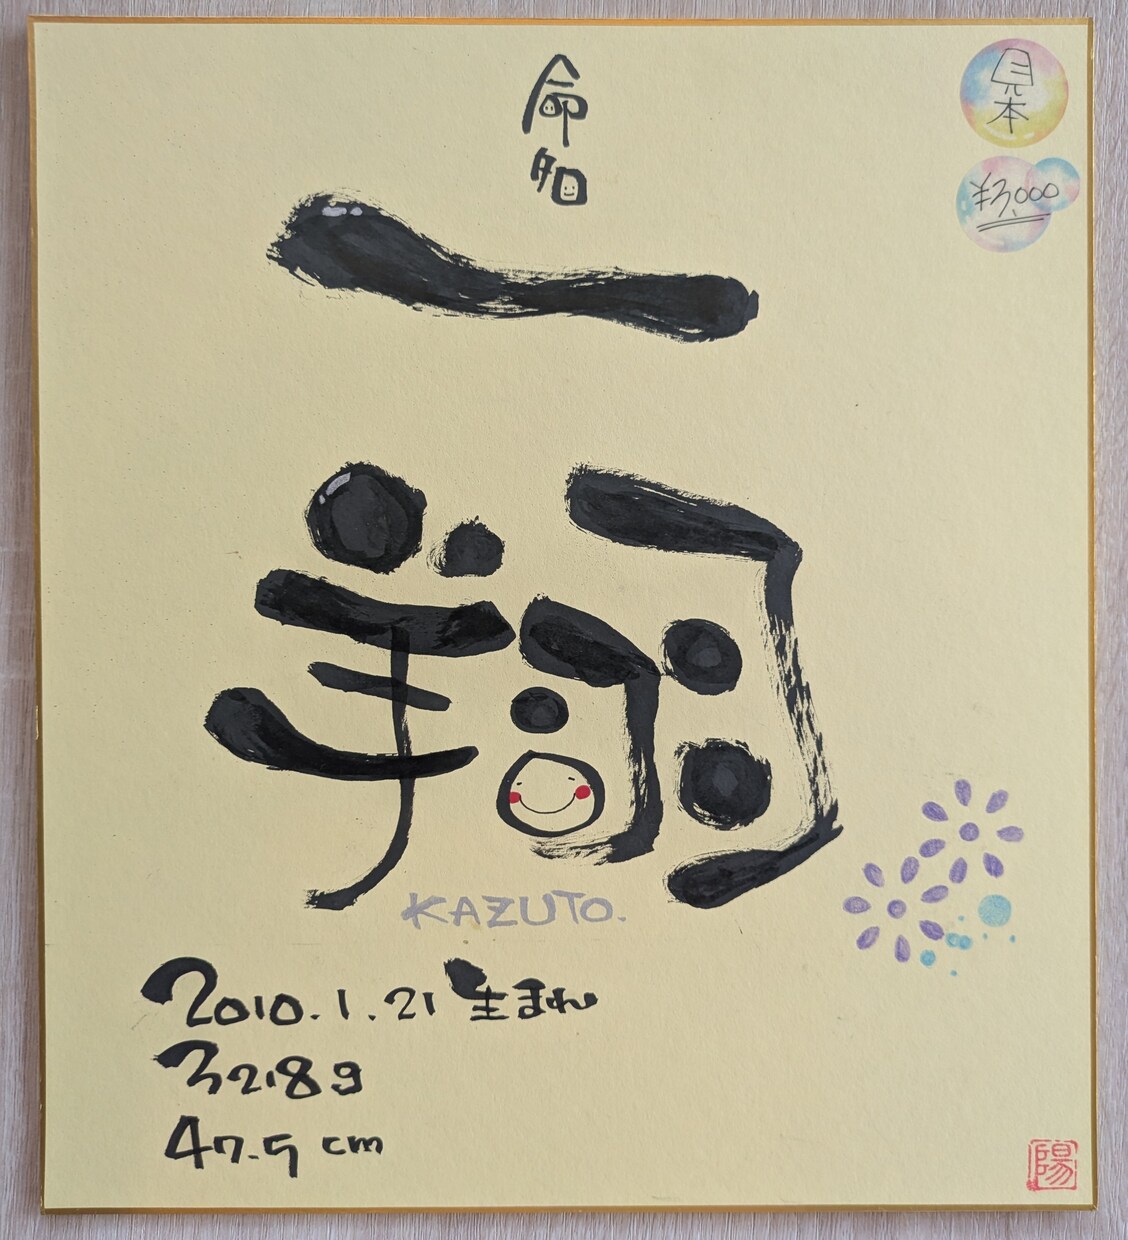 命名
見本
¥3,000
一翔
KAZUTO.
2010.1.21 生まれ
3218g
47.5cm
陽